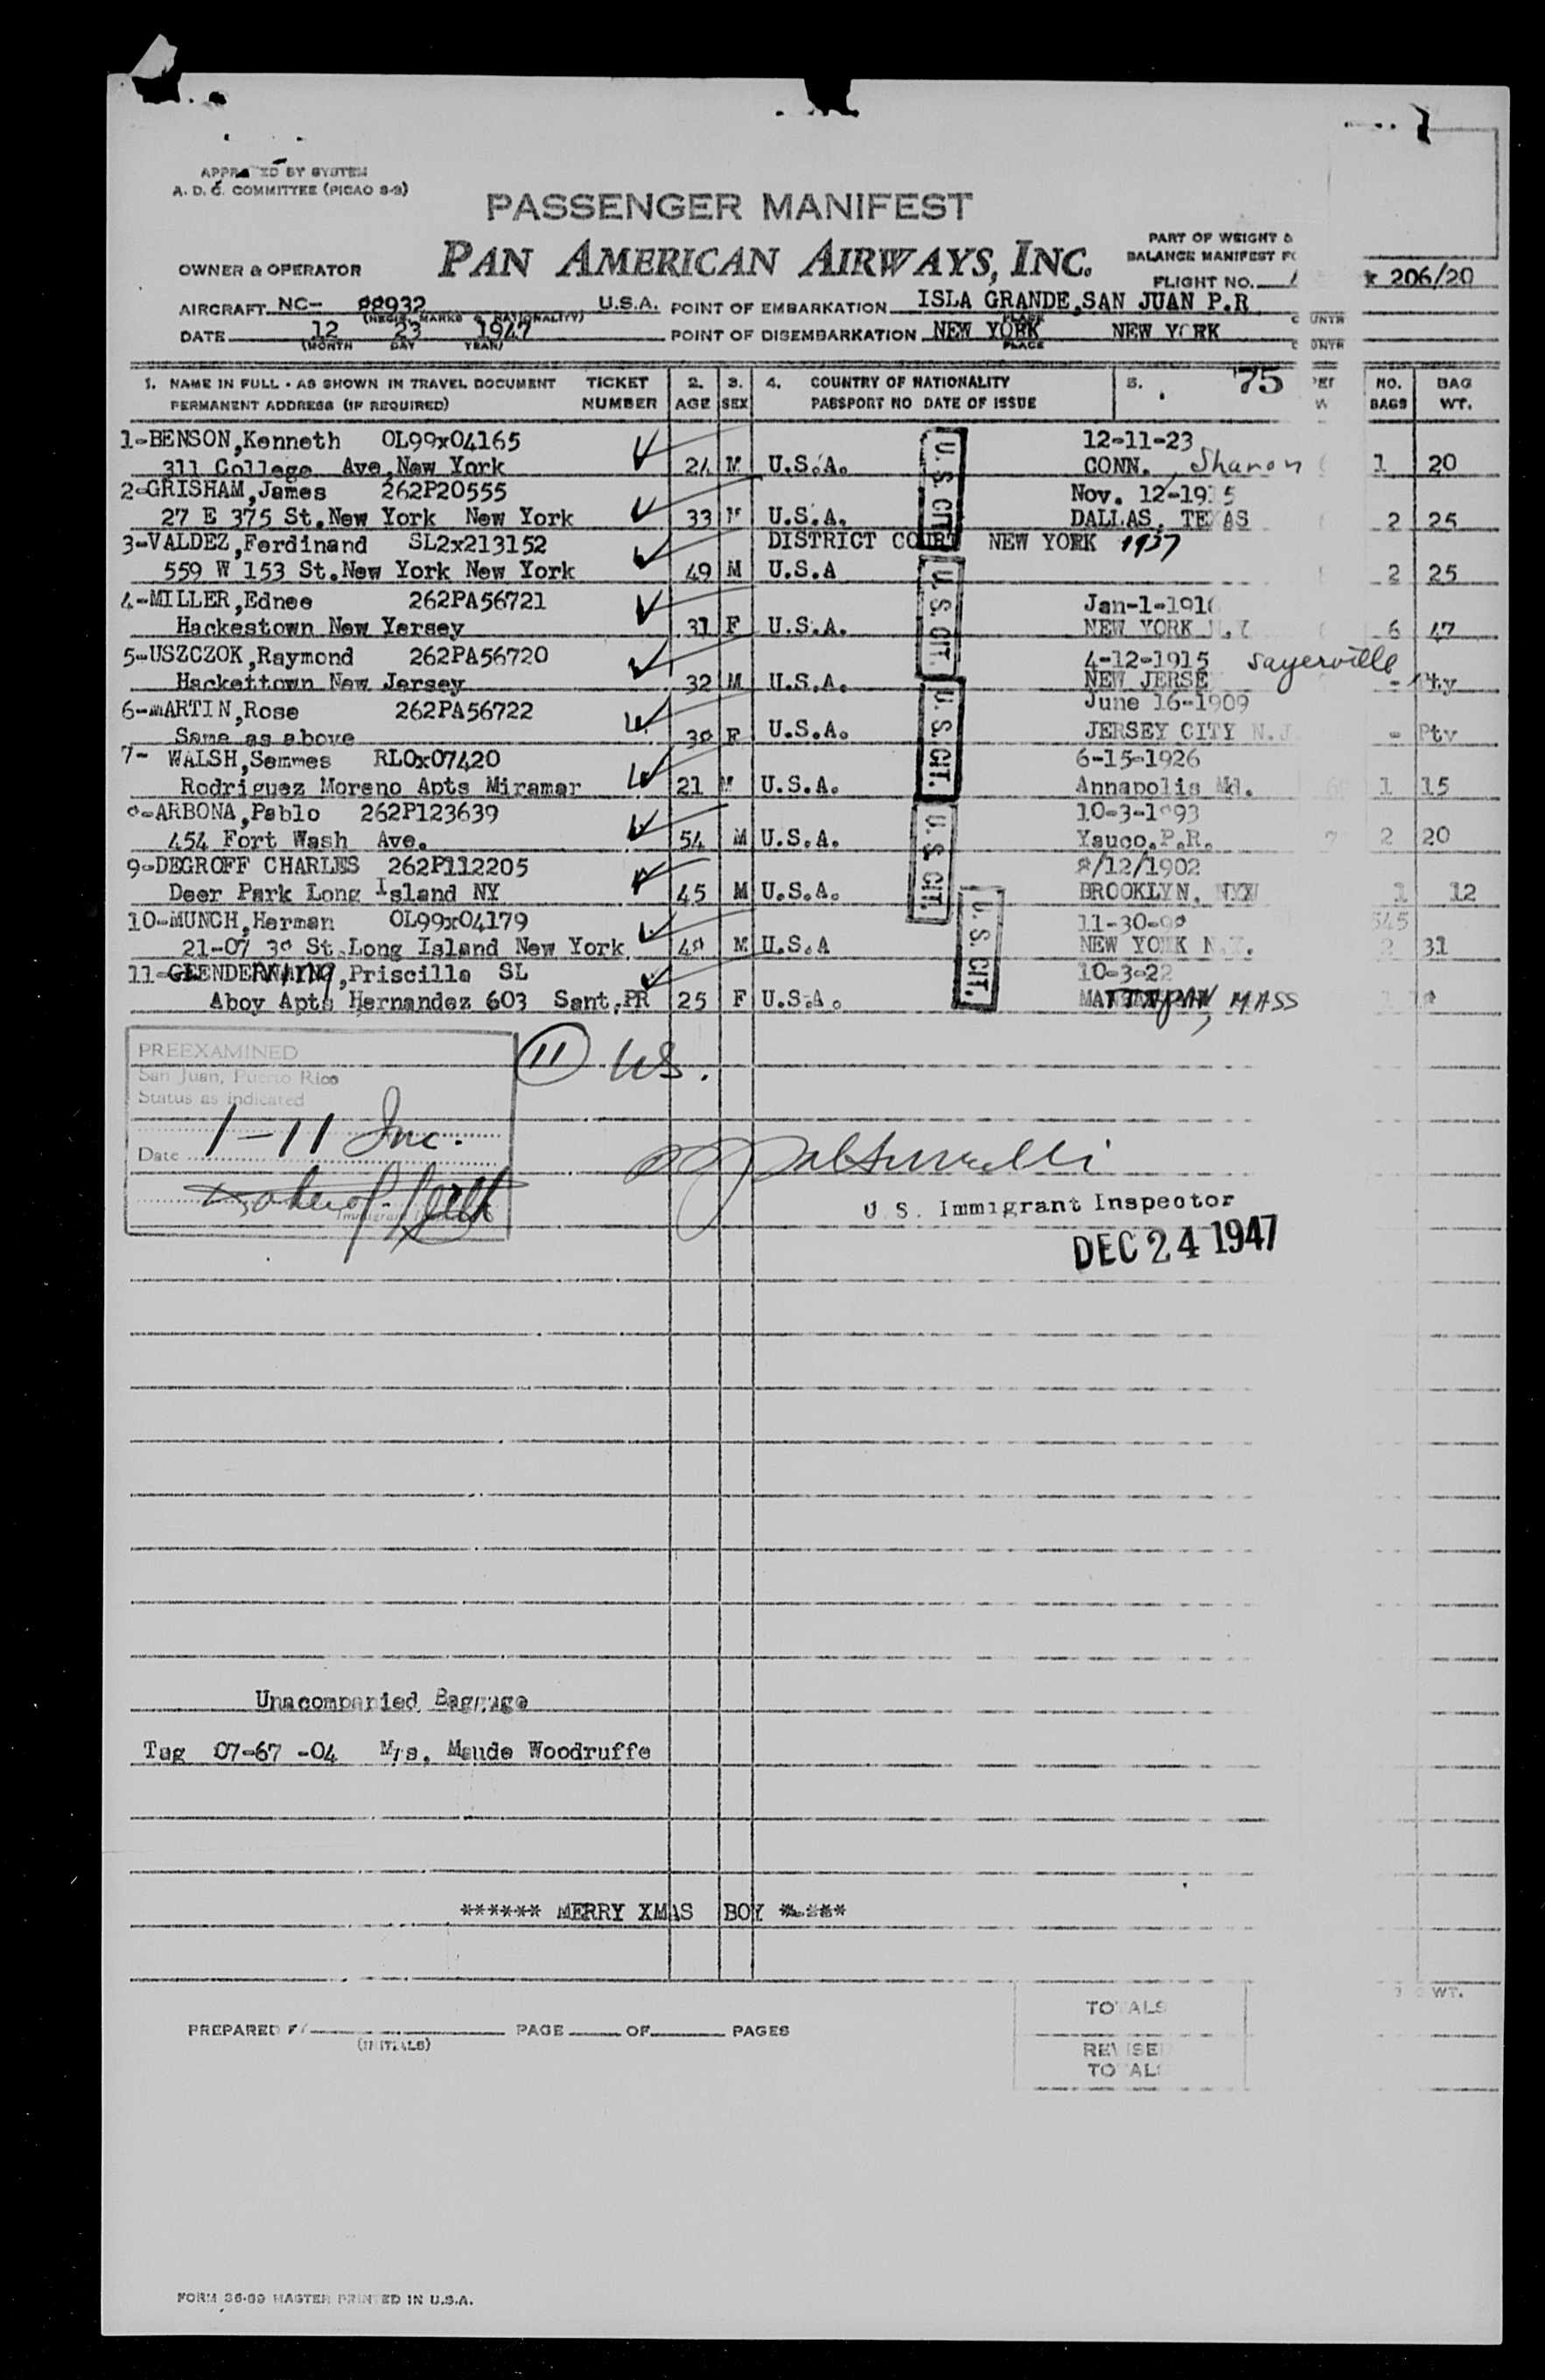 APPR ED BY SYSTEM
A. D. C. COMMITTEE (PICAO S-3)
PASSENGER MANIFEST
PAN AMERICAN AIRWAYS, INC.
PART OF WEIGHT &
BALANCE MANIFEST
OWNER & OPERATOR
FLIGHT NO. 206/20
AIRCRAFT NC- 88932 U.S.A. POINT OF EMBARKATION ISLA GRANDE,SAN JUAN P.R
(REGIS. MARKS & NATIONALITY) PLACE
DATE 12 23 1947 POINT OF DISEMBARKATION NEW YORK NEW YORK
(MONTH DAY YEAR) PLACE
1. NAME IN FULL - AS SHOWN IN TRAVEL DOCUMENT TICKET 2. 3. 4. COUNTRY OF NATIONALITY 5. 75 NO. BAG
PERMANENT ADDRESS (IF REQUIRED) NUMBER AGE SEX PASSPORT NO DATE OF ISSUE BAGS WT.
1-BENSON,Kenneth OL99x04165 12-11-23
311 College Ave,New York 24 M U.S.A. CONN. Sharon 1 20
2-GRISHAM,James 262P20555 Nov. 12-1915
27 E 375 St.New York New York 33 M U.S.A. DALLAS, TEXAS 2 25
3-VALDEZ,Ferdinand SL2x213152 DISTRICT COURT NEW YORK 1937
559 W 153 St.New York New York 49 M U.S.A 2 25
4-MILLER,Ednee 262PA56721 Jan-1-1916
Hackestown New Yersey 31 F U.S.A. NEW YORK N.Y 6 47
5-USZCZOK,Raymond 262PA56720 4-12-1915 Sayerville
Hackettown New Jersey 32 M U.S.A. NEW JERSE - Pty
6-MARTIN,Rose 262PA56722 June 16-1909
Same as above 38 F U.S.A. JERSEY CITY N.J. - Pty
7- WALSH,Semmes RLOx07420 6-15-1926
Rodriguez Moreno Apts Miramar 21 M U.S.A. Annapolis Md. 1 15
8-ARBONA,Pablo 262P123639 10-3-1893
454 Fort Wash Ave. 54 M U.S.A. Yauco,P.R. 2 20
9-DEGROFF CHARLES 262P112205 8/12/1902
Deer Park Long Island NY 45 M U.S.A. BROOKLYN, NY 1 12
10-MUNCH,Herman OL99x04179 11-30-98
21-07 38 St.Long Island New York 48 M U.S.A NEW YORK N.Y. 2 31
11-GLENDENNING,Priscilla SL 10-3-22
Aboy Apts Hernandez 603 Sant.PR 25 F U.S.A. MATTAPAN, MASS
U.S. CIT.
U.S. CIT.
U.S. CIT.
U.S. CIT.
U.S. CIT.
PREEXAMINED
San Juan, Puerto Rico
Status as indicated
1-11 Inc.
Date
11 US.
U S. Immigrant Inspector
DEC 24 1947
Unacompanied Baggage
Tag 07-67 -04 Mrs. Maude Woodruffe
****** MERRY XMAS BOY *****
PREPARED BY PAGE OF PAGES
(INITIALS)
TOTALS
REVISED
TOTALS
WT.
FORM 36-09 MASTER PRINTED IN U.S.A.